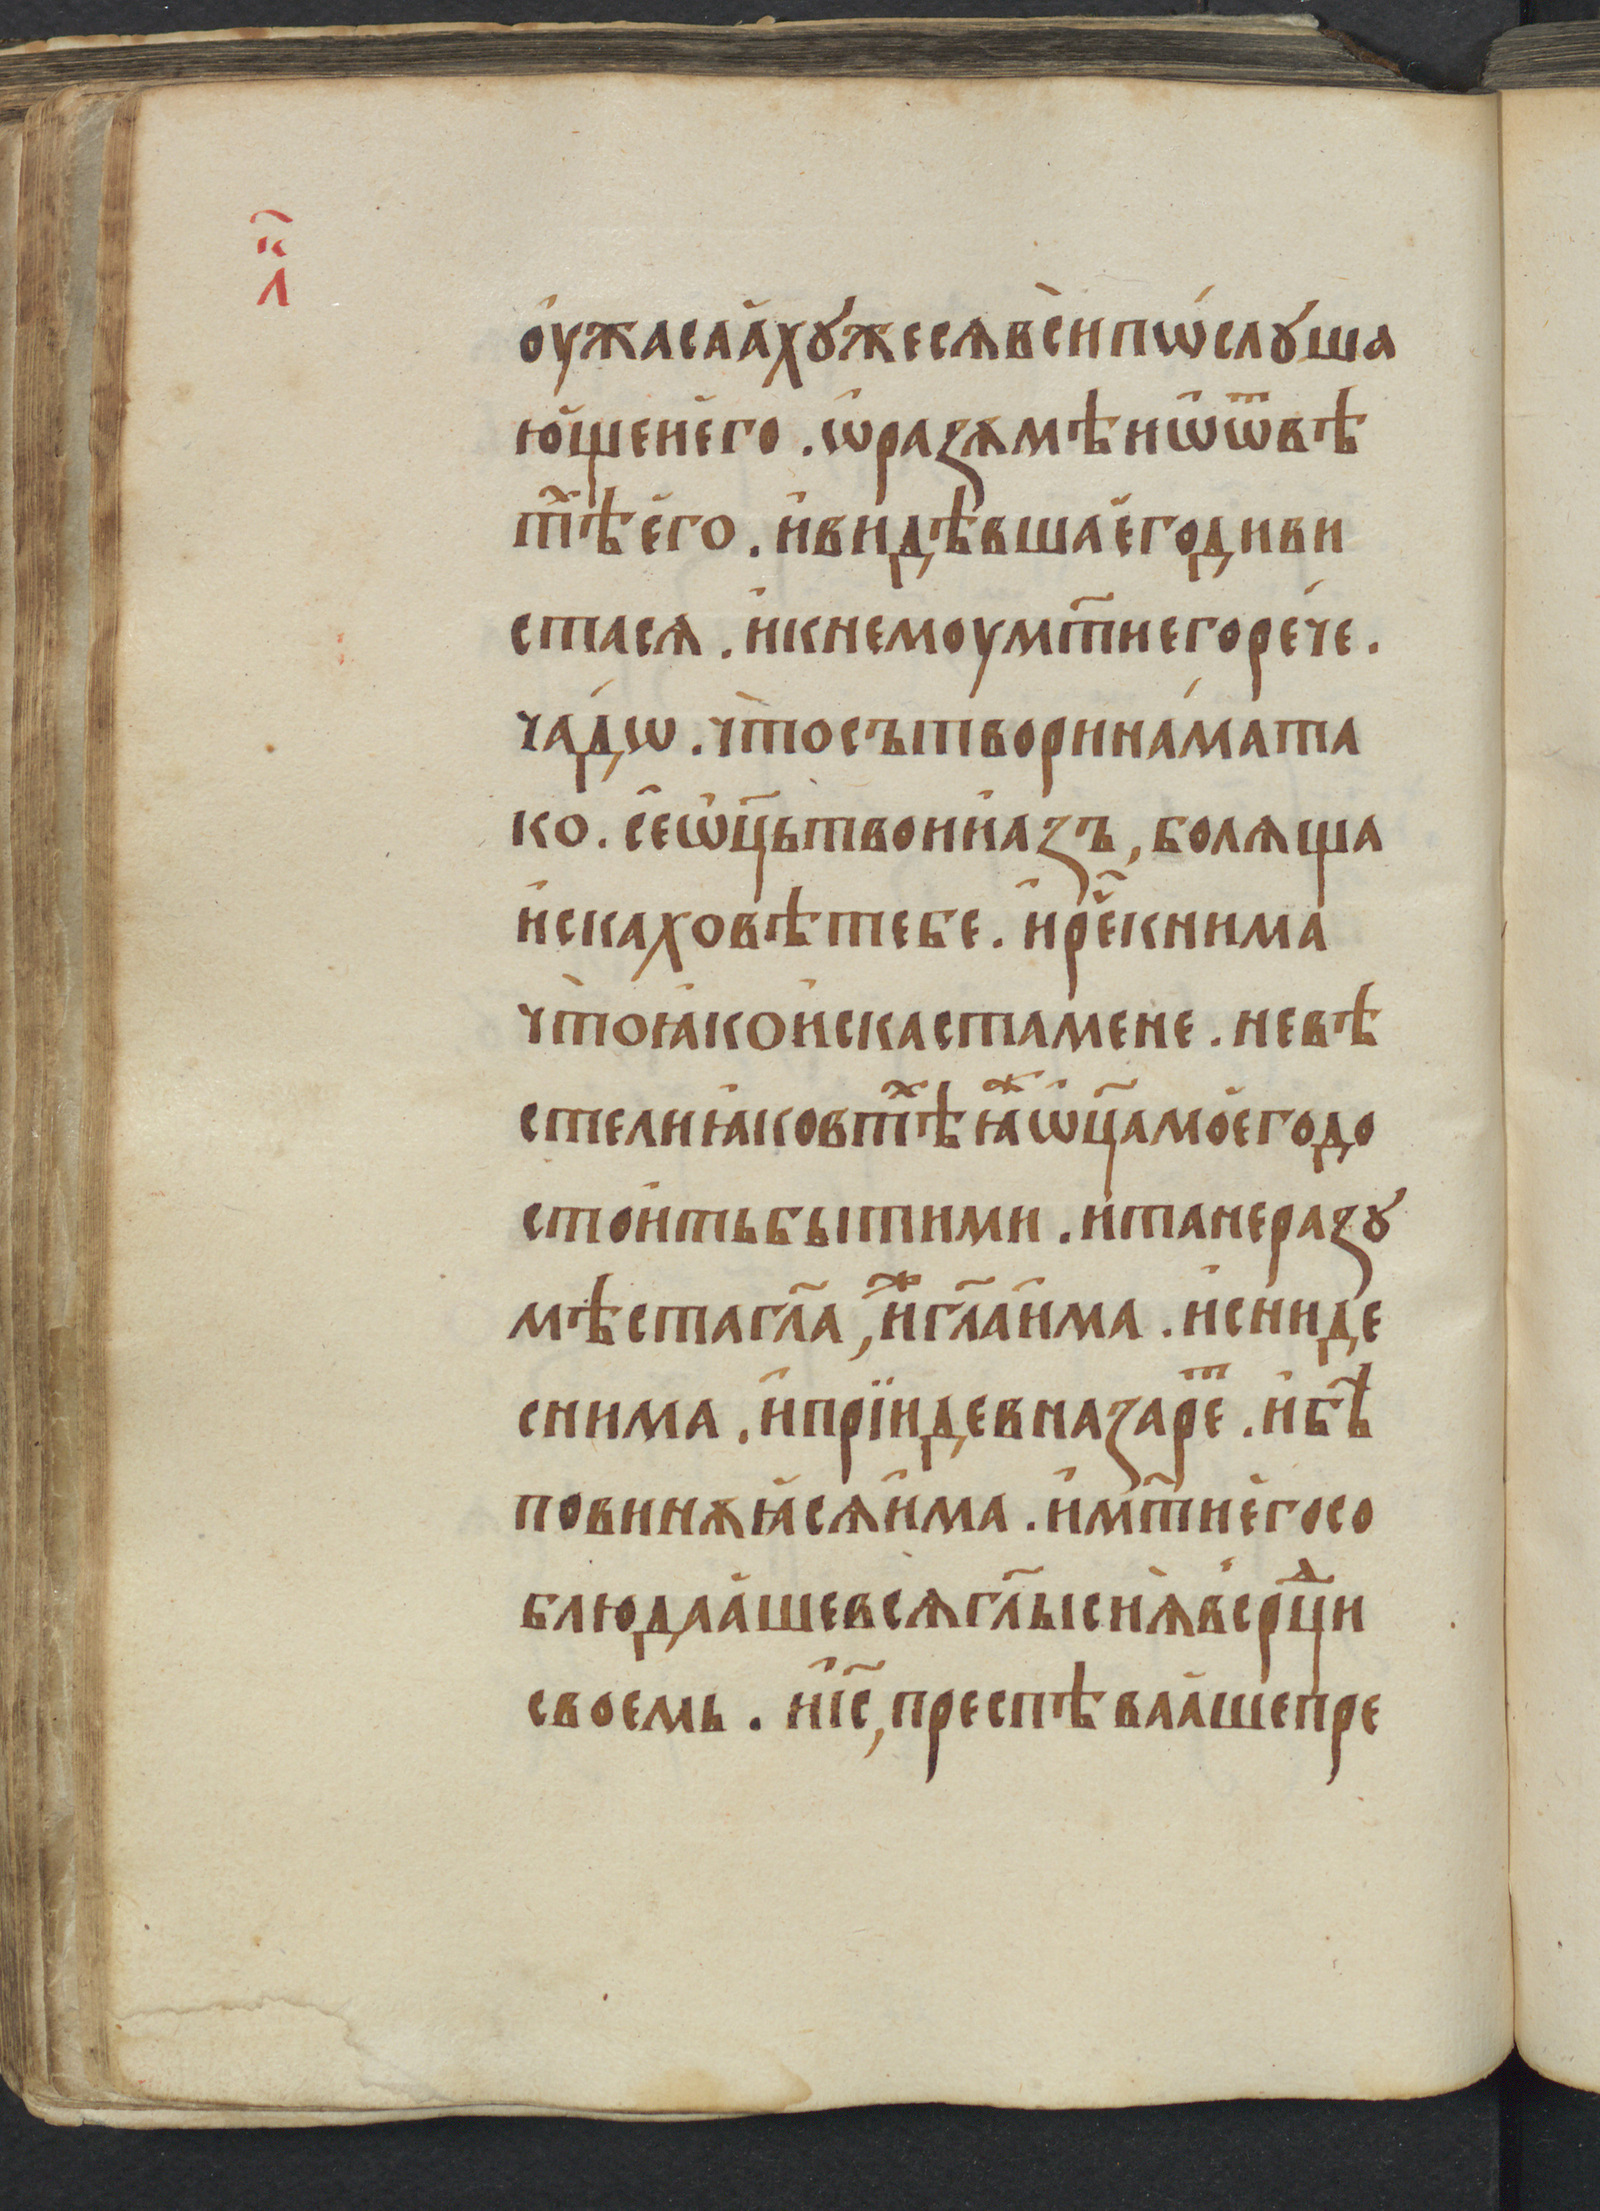 к҃
л
оу҆жасаа҆хꙋжесѧвс̀ипѡ́слꙋша
ю҆щеие҆го . ѡ҆разѫмѣиѡ҆ѿвѣ
тⷯѣе҆го . и҆видѣвшае҆годиви
стасѧ . и҆кнемоумт҃иегоре́че .
ча́дѡ . чт̀осътворина́мата
ко . се҆ѡ҆ц҃ьтвои҆и҆азъ , болѧща
и҆скаховѣтебе . и҆ре҃книма
чт̀оꙗ҆кои҆скастамене . невѣ
стелиꙗ҆ковтⷯѣꙗ҆ⷤѡ҆ц҃амое҆годо
стои҆тьбытими . и҆танеразꙋ
мѣстагл҃а , и҆ⷤгл҃аи҆ма . и҆сниде
снима . и҆прїидевназареⷮ . и҆бѣ҃
повинѫꙗ҆сѧи҆ма . и҆мт҃ие҆госо
блюдаа҆шевсѧгл҃ысиѧ҆в̾срⷣц҃и
своемь . и҆і҃с , преспѣваа҆шепре